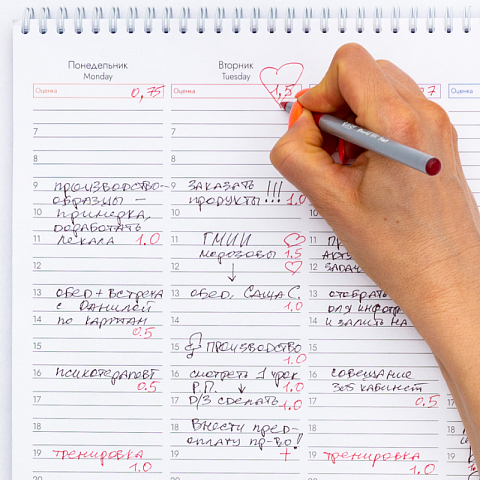 Понедельник
Monday
Оценка 0,75
7
8
9 производство-
образцы -
10 примерка,
доработать
11 лекала 1.0
12
13 обед + встреча
с Данилой
14 по картам
0.5
15
16 психотерапевт
0.5
17
18
19 тренировка
1.0
20
Вторник
Tuesday
Оценка 1,5
7
8
9 заказать !!!
10 продукты!.. 1.0
11 ГМИИ
Морозовы 1.5
12
13 обед, Саша С.
14 1.0
15 производство
1.0
16 смотреть 1 урок
Р.П. 1.0
17 Д/З сделать 1.0
18 Внести пред-
оплату пр-во!
19 +
7
11
12 задач
13 отобрать
для инфогр
14 и залить на
15
16 совещание
305 кабинет
17 0.5
18
19 тренировка
1.0
Оценка
17
18
19